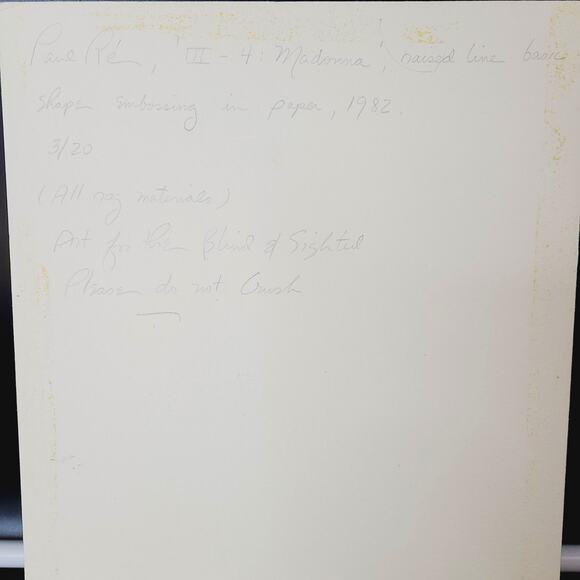 Paul Ré, 'III - 4: Madonna', raised line basic
shape embossing in paper, 1982.
3/20
(All rag materials)
Art for the Blind & Sighted
Please do not Crush